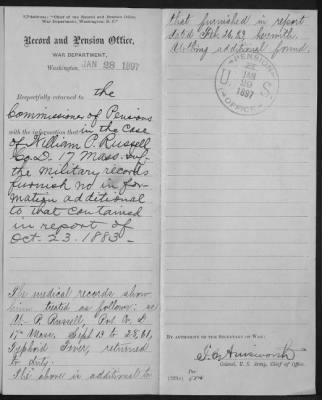 Address: "Chief of the Record and Pension Office,
War Department, Washington, D. C."
Record and Pension Office,
WAR DEPARTMENT,
Washington, JAN 28 1897
Respectfully returned to the
Commissioner of Pensions
with the information that in the case
of William P. Russell
Co. D. 17 Mass. Inf.
the military records
furnish no in for-
mation additional
to that contained
in report of
Oct. 23. 1883 -
The medical records show
him treated as follows: as
W. P. Russell, Pvt Co. D
17 Mass. Sept 13 to 28, 61,
Typhoid Fever, returned
to duty.
The above in additional to
that furnished in report
dated Feb. 26. 89 herewith.
Nothing additional found.
PENSION
U. S.
JAN
29
1897
OFFICE
BY AUTHORITY OF THE SECRETARY OF WAR:
F. C. Ainsworth
Colonel, U. S. Army, Chief of Office.
Per